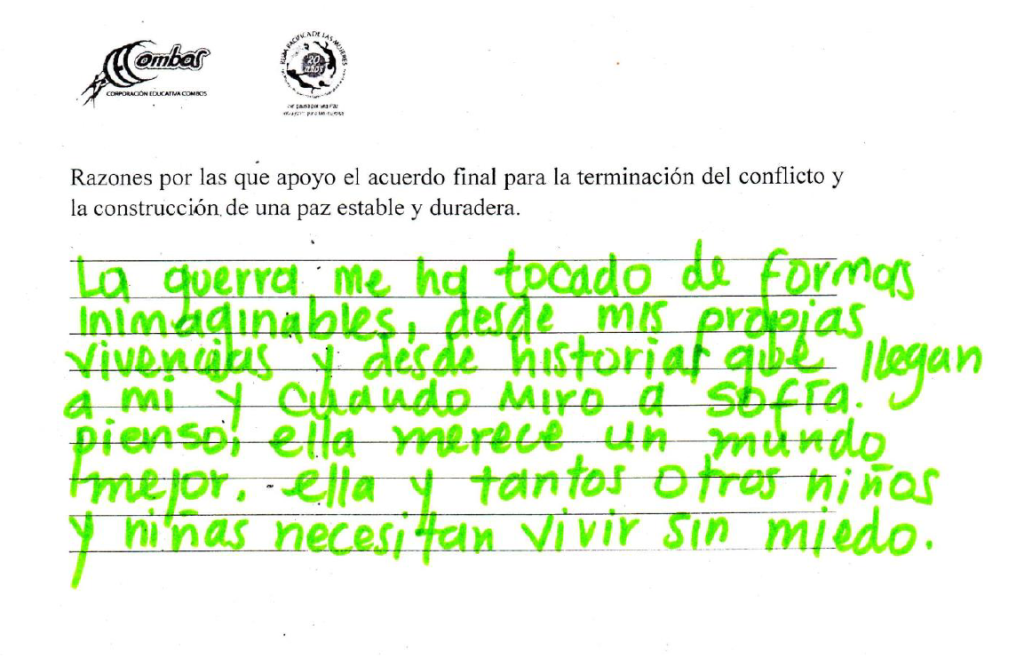 Combos
CORPORACIÓN EDUCATIVA COMBOS
RUTA PACÍFICA DE LAS MUJERES
20
años
Razones por las que apoyo el acuerdo final para la terminación del conflicto y
la construcción de una paz estable y duradera.
La guerra me ha tocado de formas
inimaginables, desde mis propias
vivencias y desde historias que llegan
a mi y cuando miro a Sofía.
pienso, ella merece un mundo
mejor. ella y tantos otros niños
y niñas necesitan vivir sin miedo.